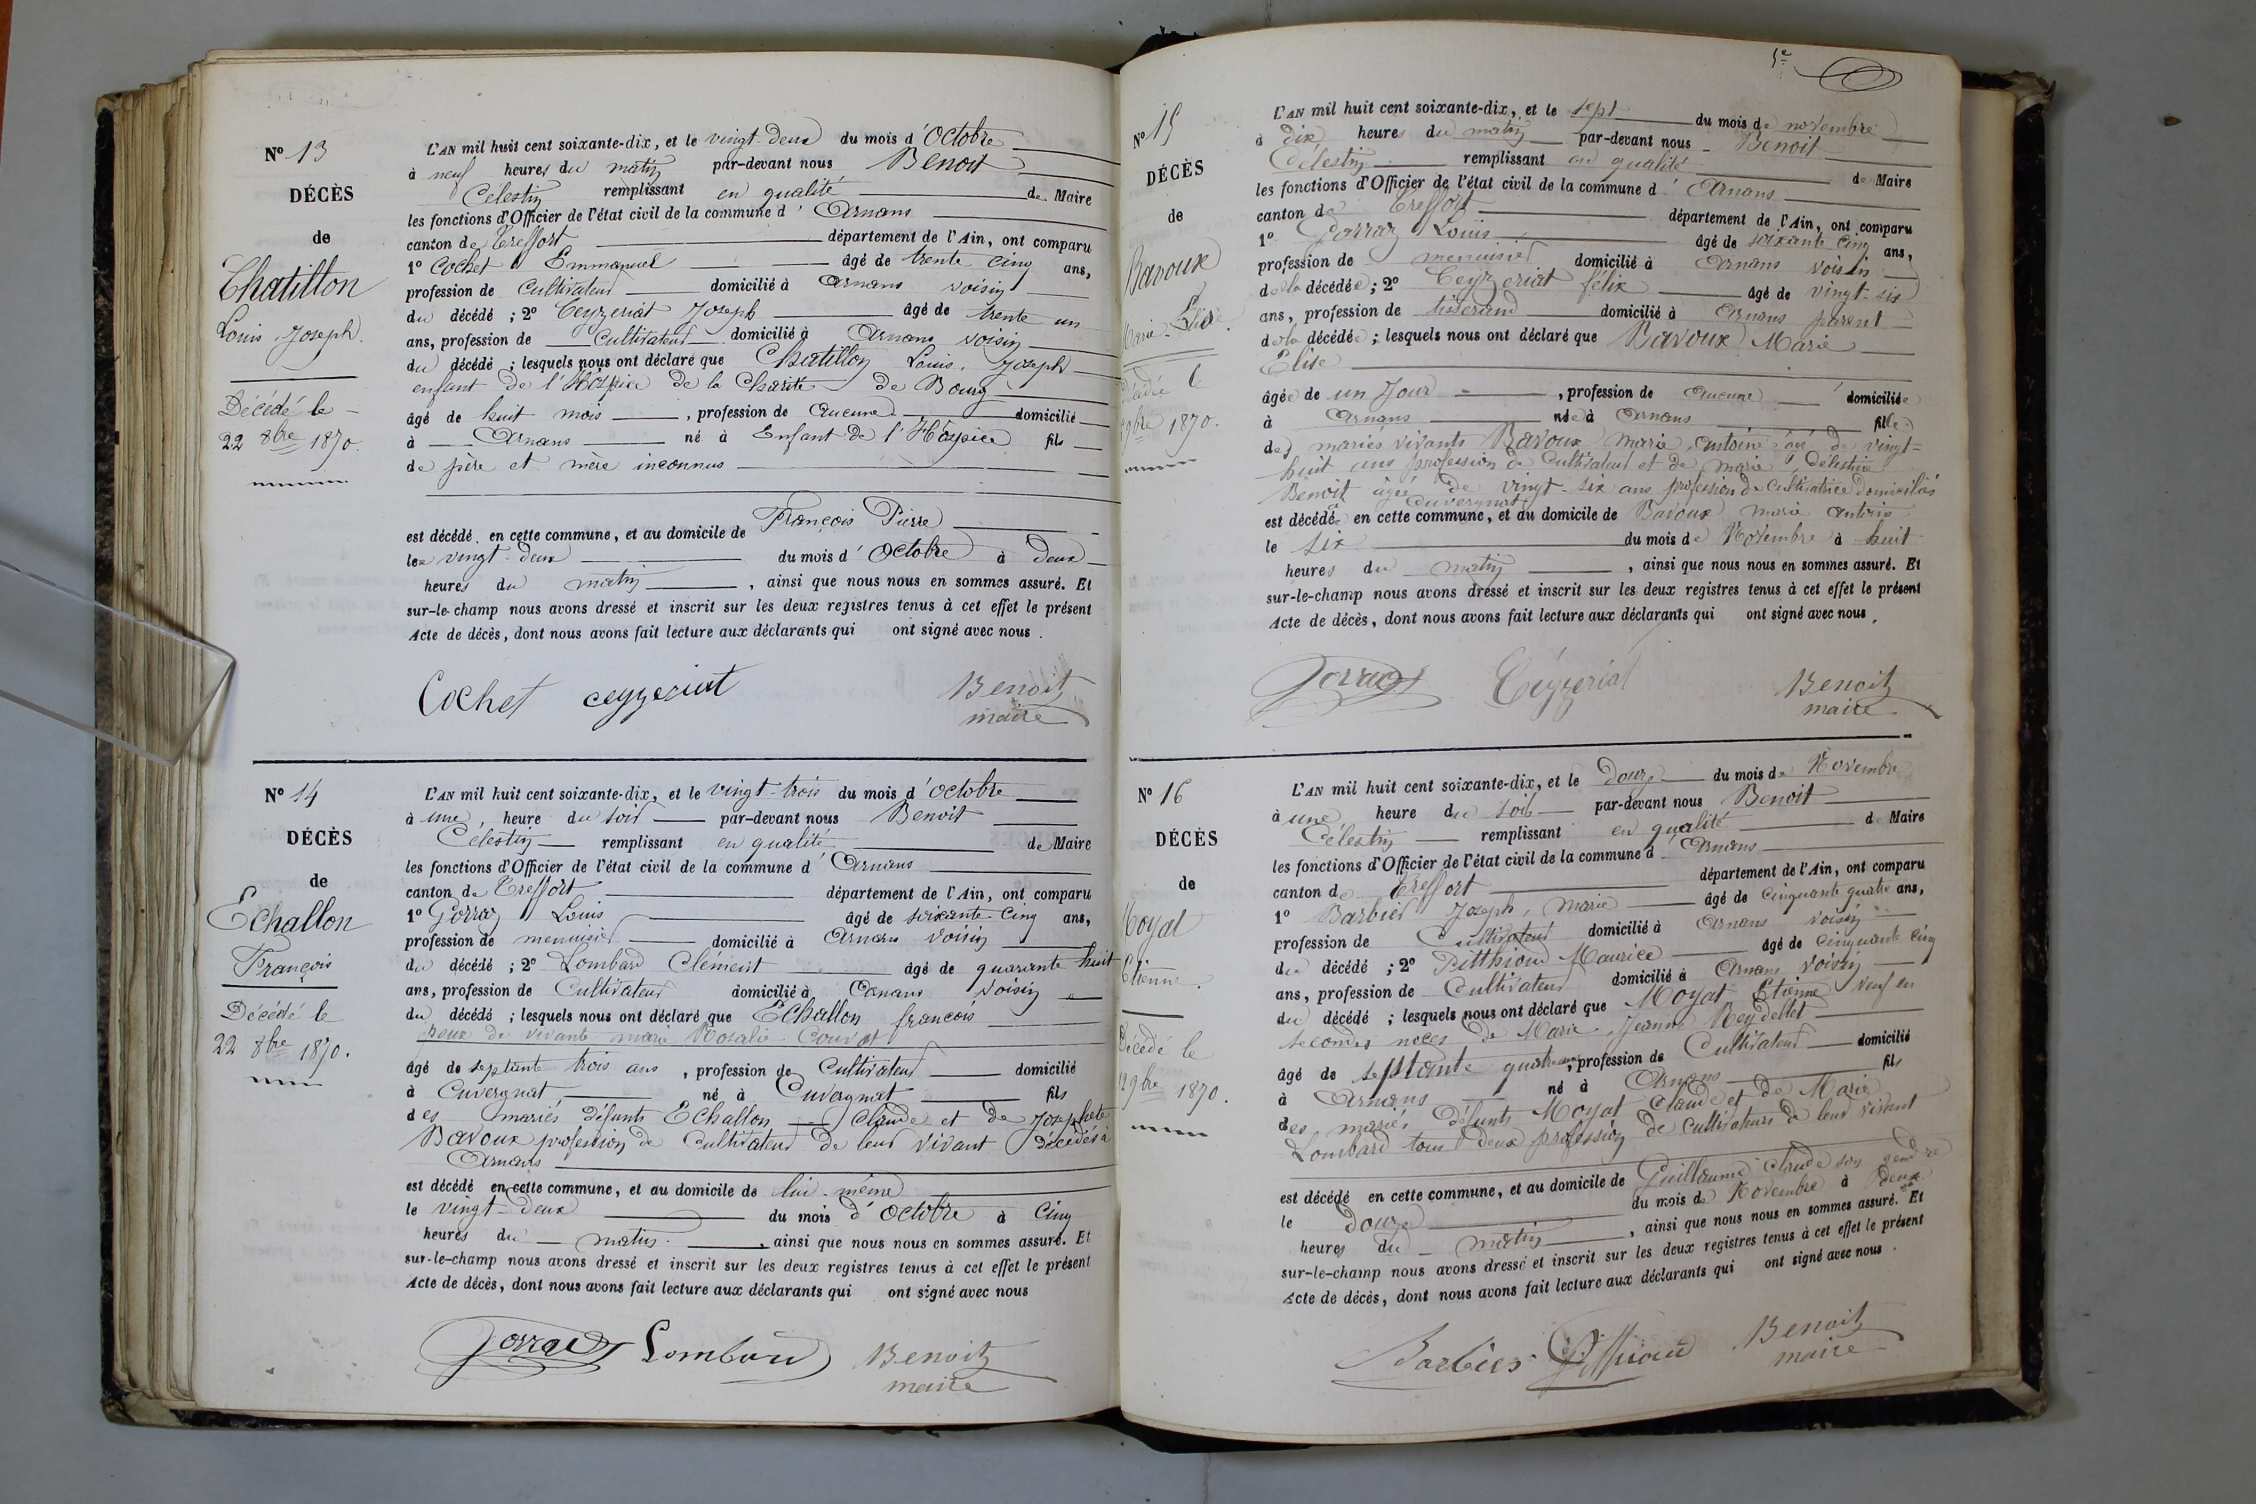 Nº 13
DÉCÈS
de
Chatillon
Louis Joseph.
Décédé le
22 8bre 1870.
L'AN mil huit cent soixante-dix, et le vingt-deux du mois d'Octobre
à neuf heures du matin par-devant nous Benoit
Celestin remplissant en qualité de Maire
les fonctions d'Officier de l'état civil de la commune d'Arnans
canton de Treffort département de l'Ain, ont comparu
1º Cochet Emmanuel âgé de trente cinq ans,
profession de Cultivateur domicilié à Arnans voisin
du décédé ; 2º Ceyzeriat Joseph âgé de trente un
ans, profession de Cultivateur domicilié à Arnans voisin
du décédé ; lesquels nous ont déclaré que Chatillon Louis, Joseph
enfant de l'Hospice de la Charité de Bourg
âgé de huit mois, profession de Aucune domicilié
à Arnans né à Enfant de l'Hospice fils
de père et mère inconnus
est décédé en cette commune, et au domicile de François Pierre
le vingt-deux du mois d'Octobre à deux
heures du matin, ainsi que nous nous en sommes assuré. Et
sur-le-champ nous avons dressé et inscrit sur les deux registres tenus à cet effet le présent
Acte de décès, dont nous avons fait lecture aux déclarants qui ont signé avec nous.
Cochet ceyzeriat Benoit
maire
Nº 14
DÉCÈS
de
Echallon
François
Décédé le
22 8bre 1870.
L'AN mil huit cent soixante-dix, et le vingt-trois du mois d'Octobre
à une, heure du soir par-devant nous Benoit
Célestin remplissant en qualité de Maire
les fonctions d'Officier de l'état civil de la commune d'Arnans
canton de Treffort département de l'Ain, ont comparu
1º Gorraz Louis âgé de soixante-cinq ans,
profession de menuisier domicilié à Arnans voisin
du décédé ; 2º Lombard Clément âgé de quarante huit
ans, profession de Cultivateur domicilié à Arnans voisin
du décédé ; lesquels nous ont déclaré que Echallon françois
époux de vivante marie Rosalie
âgé de septante trois ans, profession de Cultivateur domicilié
à Cuvergnat, né à Cuvergnat fils
des mariés défunts Echallon Claude et de Josephete
Bavoux profession de Cultivateur de leur vivant décédés à
Arnans
est décédé en cette commune, et au domicile de lui-même
le vingt-deux du mois d'Octobre à Cinq
heures du matin, ainsi que nous nous en sommes assuré. Et
sur-le-champ nous avons dressé et inscrit sur les deux registres tenus à cet effet le présent
Acte de décès, dont nous avons fait lecture aux déclarants qui ont signé avec nous
Gorraz Lombard Benoit
maire
5e
Nº 15
DÉCÈS
de
Bavoux
Marie-Elise.
Décédée le
9bre 1870.
L'AN mil huit cent soixante-dix, et le sept du mois de novembre
à dix heures du matin par-devant nous Benoit
Célestin remplissant en qualité de Maire
les fonctions d'Officier de l'état civil de la commune d'Arnans
canton de Treffort département de l'Ain, ont comparu
1º Gorraz Louis âgé de soixante cinq ans,
profession de menuisier domicilié à Arnans voisin
de la décédée ; 2º Ceyzeriat félix âgé de vingt-six
ans, profession de tisserand domicilié à Arnans parent
de la décédée ; lesquels nous ont déclaré que Bavoux Marie
Elise
âgée de un Jour, profession de Aucune domiciliée
à Arnans née à Arnans fille
des mariés vivants Bavoux marie, antoine âgé de vingt-
huit ans profession de Cultivateur et de marie Célestine
Benoit âgée de vingt-six ans profession de Cultivatrice domiciliés
à Cuvergnat
est décédée en cette commune, et au domicile de Bavoux marie antoine
le six du mois de Novembre à huit
heures du matin, ainsi que nous nous en sommes assuré. Et
sur-le-champ nous avons dressé et inscrit sur les deux registres tenus à cet effet le présent
Acte de décès, dont nous avons fait lecture aux déclarants qui ont signé avec nous.
Gorraz Céyzeriat Benoit
maire
Nº 16
DÉCÈS
de
Moyat
Etienne.
Décédé le
12 9bre 1870.
L'AN mil huit cent soixante-dix, et le douze du mois de Novembre
à une heure du soir par-devant nous Benoit
Célestin remplissant en qualité de Maire
les fonctions d'Officier de l'état civil de la commune d'Arnans
canton de Treffort département de l'Ain, ont comparu
1º Barbier Joseph, marie âgé de cinquante quatre ans,
profession de Cultivateur domicilié à Arnans voisin
du décédé ; 2º Pitthioud Maurice âgé de cinquante cinq
ans, profession de Cultivateur domicilié à Arnans voisin
du décédé ; lesquels nous ont déclaré que Moyat Etienne veuf en
secondes noces de Marie-Jeanne Reydellet
âgé de septante quatre ans, profession de Cultivateur domicilié
à Arnans né à Arnans fils
des mariés défunts Moyat Claude et de Marie
Lombard tous deux profession de Cultivateurs de leur vivant
est décédé en cette commune, et au domicile de Guillaume Claude son gendre
le douze du mois de Novembre à deux
heures du matin, ainsi que nous nous en sommes assuré. Et
sur-le-champ nous avons dressé et inscrit sur les deux registres tenus à cet effet le présent
Acte de décès, dont nous avons fait lecture aux déclarants qui ont signé avec nous.
Barbier Benoit
maire